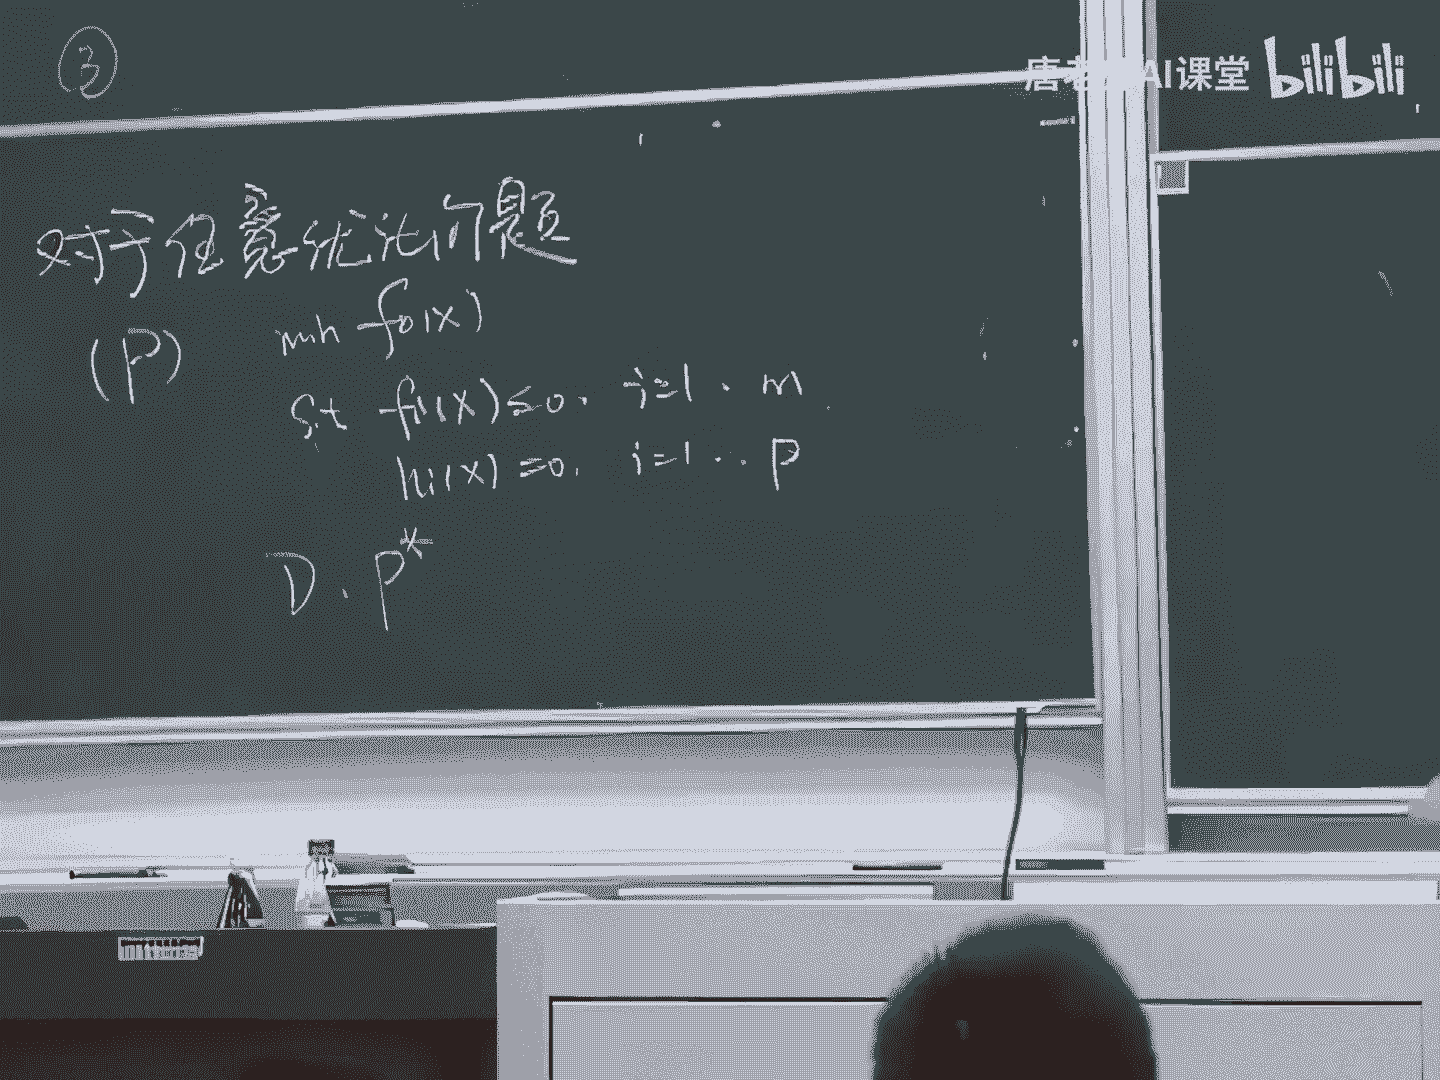 ③
唐老 AI课堂 bilibili
对于任意优化问题
(P) min f₀(x)
s.t fᵢ(x)≤0. i=1 . m
hᵢ(x)=0. i=1 ... p
D. p*